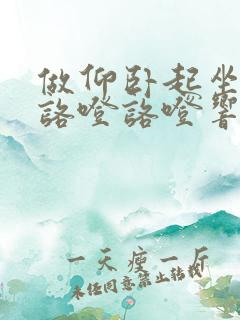 做仰卧起坐
咯噔咯噔響
一天瘦一斤
未经同意禁止转载